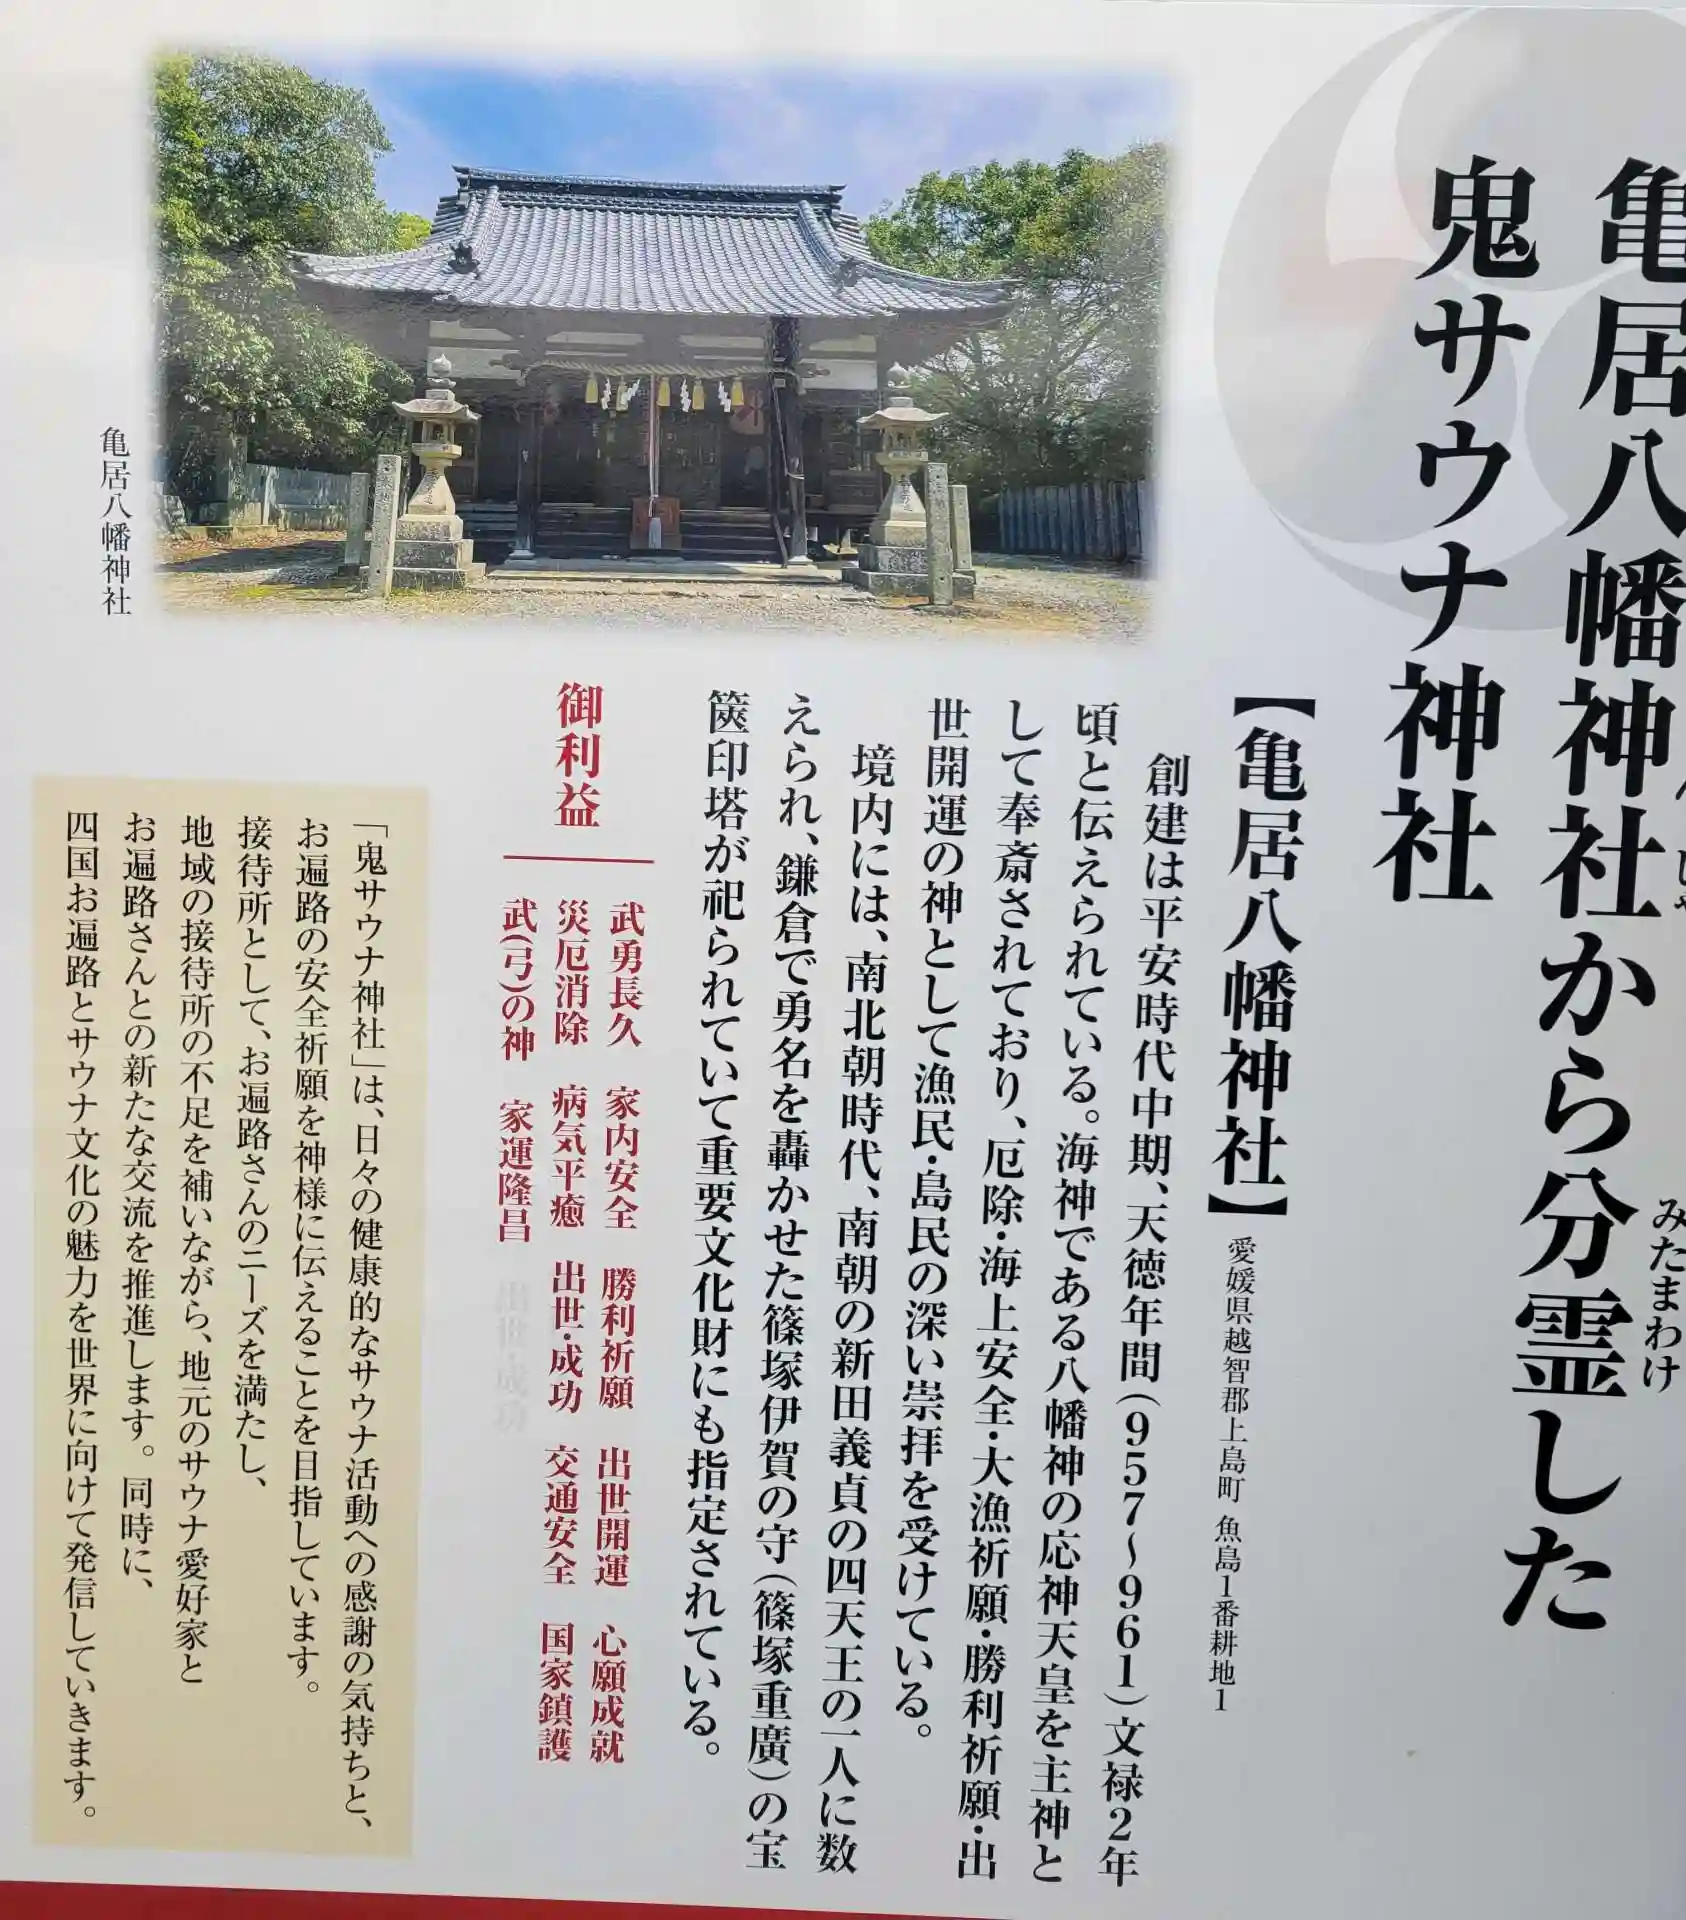 亀居八幡神社から分霊した
みたまわけ
鬼サウナ神社
【亀居八幡神社】
愛媛県越智郡上島町 魚島1番耕地1
創建は平安時代中期、天徳年間(957〜961)文禄2年
頃と伝えられている。海神である八幡神の応神天皇を主神と
して奉斎されており、厄除・海上安全・大漁祈願・勝利祈願・出
世開運の神として漁民・島民の深い崇拝を受けている。
境内には、南北朝時代、南朝の新田義貞の四天王の一人に数
えられ、鎌倉で勇名を轟かせた篠塚伊賀の守(篠塚重廣)の宝
篋印塔が祀られていて重要文化財にも指定されている。
御利益
武勇長久 家内安全 勝利祈願 出世開運 心願成就
災厄消除 病気平癒 出世・成功 交通安全 国家鎮護
武(弓)の神 家運隆昌 出世・成功
亀居八幡神社
「鬼サウナ神社」は、日々の健康的なサウナ活動への感謝の気持ちと、
お遍路の安全祈願を神様に伝えることを目指しています。
接待所として、お遍路さんのニーズを満たし、
地域の接待所の不足を補いながら、地元のサウナ愛好家と
お遍路さんとの新たな交流を推進します。同時に、
四国お遍路とサウナ文化の魅力を世界に向けて発信していきます。